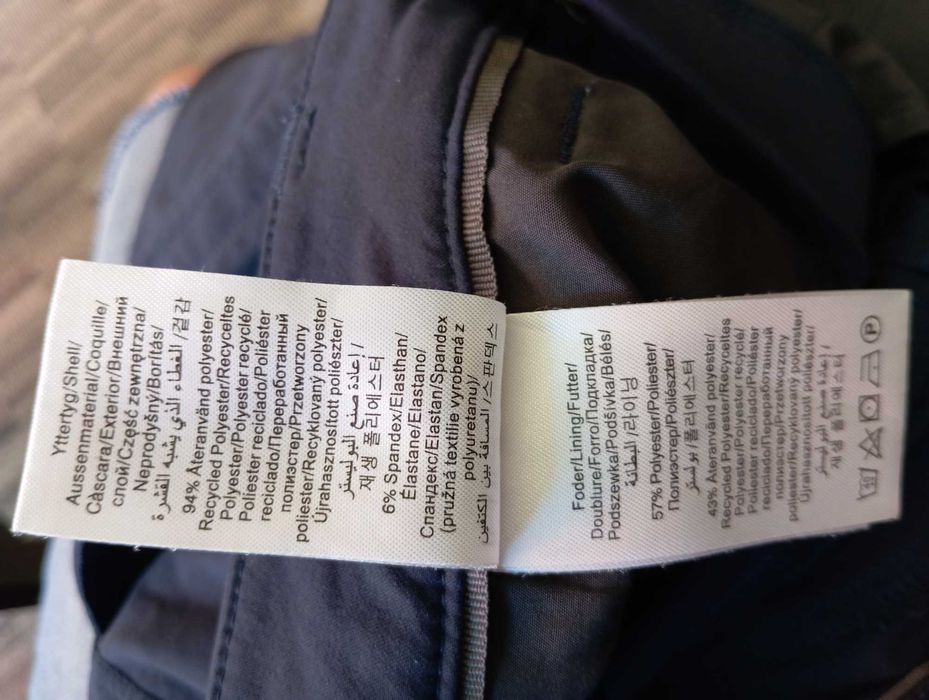 Yttertyg/Shell/
Aussenmaterial/Coquille/
Càscara/Exterior/Внешний
слой/Część zewnętrzna/
Neprodyšný/Borítás
/걸감/ الغطاء الذي يشبه القشرة
94% Återanvänd polyester/
Recycled Polyester/Recyceltes
Polyester/Polyester recyclé/
Poliester reciclado/Poliéster
reciclado/Переработанный
полиэстер/Przetworzony
poliester/Recyklovaný polyester/
Újrahasznosított poliészter/
/إعادة صنع البوليستر
재생 폴리에스터
6% Spandex/Elasthan/
Élastane/Elastano/
Спандекс/Elastan/Spandex
(pružná textilie vyrobená z
polyuretanu)/
스판덱스/ المسافة بين الكتفين
Foder/Lining/Futter/
Doublure/Forro/Подкладка/
Podszewka/Podšívka/Bélés/
라이닝/ البطانة
57% Polyester/Poliester/
Полиэстер/Poliészter/
폴리에스터/ بوليستر
43% Återanvänd polyester/
Recycled Polyester/Recyceltes
Polyester/Polyester recyclé/
Poliester reciclado/Poliéster
reciclado/Переработанный
полиэстер/Przetworzony
poliester/Recyklovaný polyester/
Újrahasznosított poliészter/
/إعادة صنع البوليستر
재생 폴리에스터
P